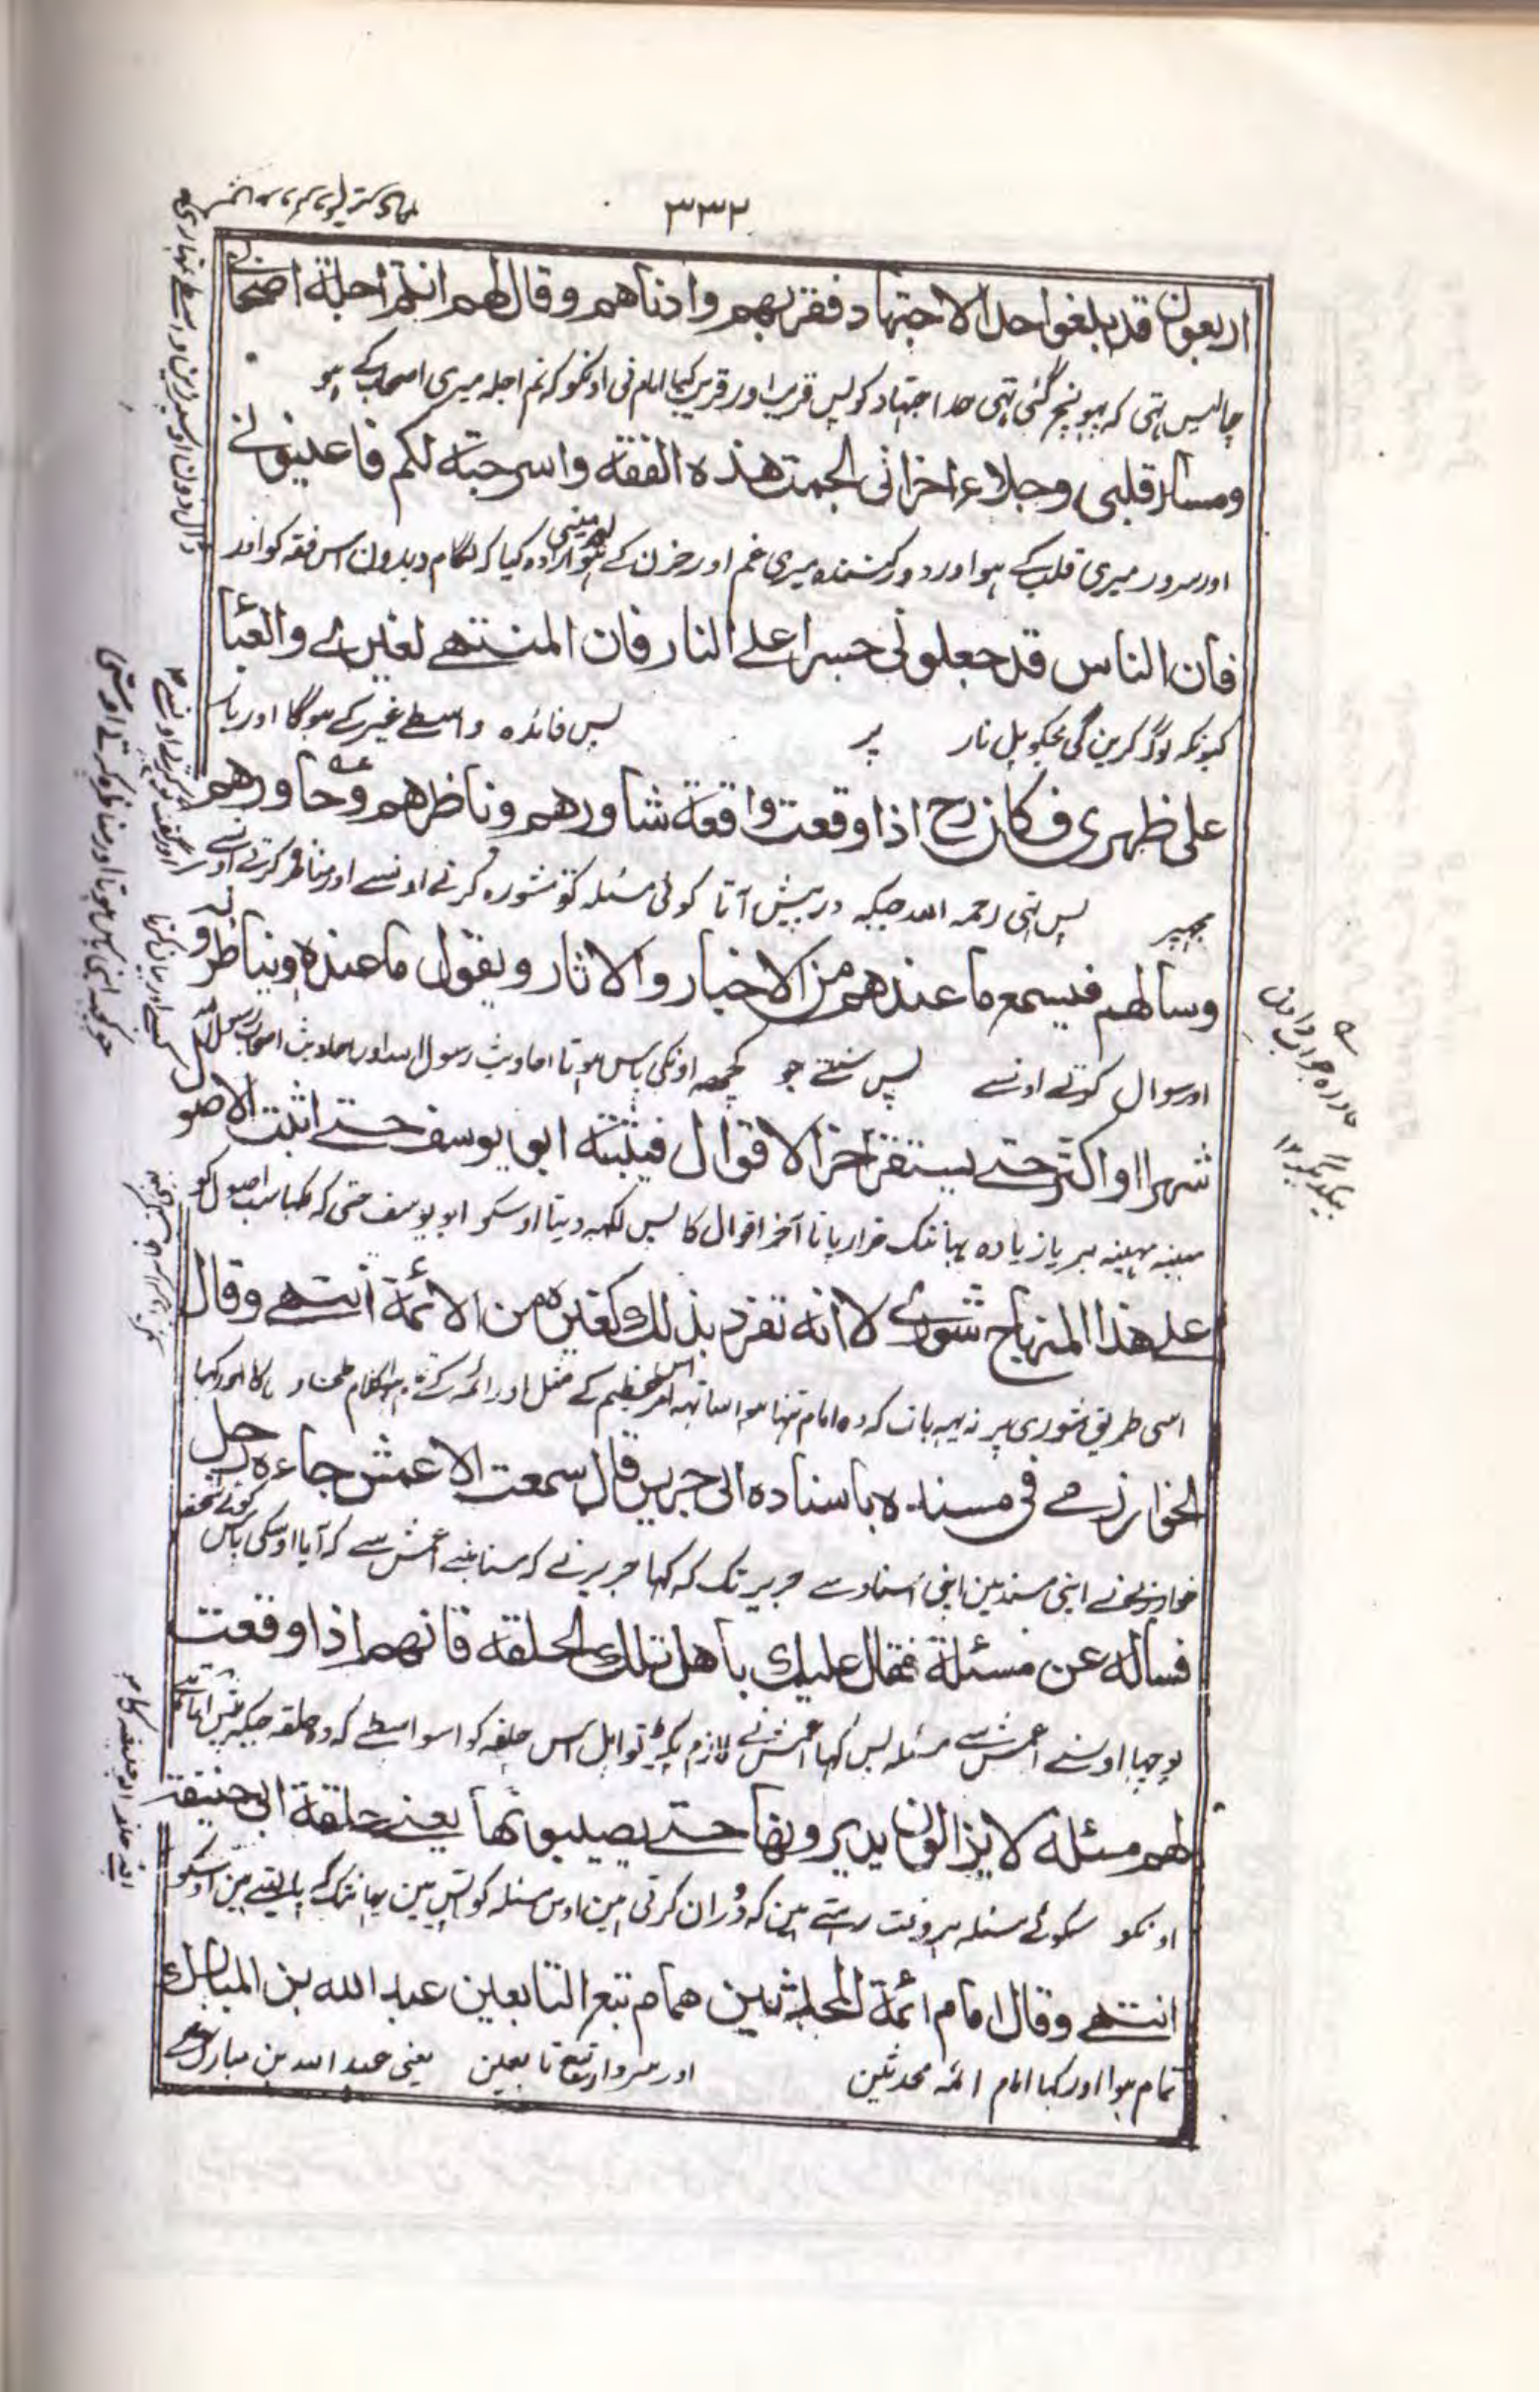 ٣٣٢
اربعون قد بلغوا حد الاجتهاد فقربهم وادناهم وقال لهم انتم اجلة اصحابي
چالیس تہی کہ پہونچ گئی تہی حد اجتہاد کو پس قریب اور قریب کیا امام نی اونکو کہ تم اجلہ میری اصحاب کے ہو
ومسار قلبي وجلاء احزاني الجمت هذه الفقه واسرجته لكم فاعينوني
اور سرور میری قلب کے ہو اور دور کنندہ میری غم اور حزن کے ہو ارادہ کیا کہ لگام دیدون اس فقہ کو اور
فان الناس قد جعلوني جسرا على النار فان المنتهى لغيري والعبأ
کیونکہ لوگ کرین گی مجکو پل نار پر پس فائدہ واسطے غیر کے ہوگا اور بار
على ظهري فكان رح اذا وقعت واقعة شاورهم وناظرهم وحاورهم
مجہپر پس تہی رحمہ اللہ جبکہ درپیش آتا کوئی مسئلہ تو مشورہ کرتے اونسے اور مناظرہ کرتے اونسے
وسألهم فيسمع ما عندهم من الاخبار والاثار ويقول ما عنده ويناظرو
اور سوال کرتے اونسے پس سنتے جو کچھہ اونکی پاس ہوتا احادیث رسول اللہ اور احادیث اصحاب رسول اللہ
شهرا او اكثر حتى يستقر اخر الاقوال فيثبته ابو يوسف حتى اثبت الاصول
مہینہ مہینہ بہر یا زیادہ یہانتک قرار پاتا آخر اقوال کا پس لکہہ دیتا اوسکو ابو یوسف حتی کہ لکہا سب اصول کو
على هذا المنهاج شورى لا انه تفرد بذلك كغيره من الائمة انتهى وقال
اسی طریق شوری پر نہ یہہ بات کہ وہ امام تنہا ہوا ساتہہ اس امر عظیم کے مثل اور ائمہ کے تمام ہوا کلام طحاوی کا اور کہا
الخوارزمي في مسنده باسناده الى جرير قال سمعت الاعمش جاءه رجل
خوارزمی نے اپنی مسند مین اپنی اسناد سے جریر تک کہ کہا جریر نے کہ سنا مینے اعمش سے کہ آیا اوسکی پاس کوئی شخص
فسأله عن مسئلة فقال عليك باهل تلك الحلقة فانهم اذا وقعت
پوچہا اوسنے اعمش سے مسئلہ پس کہا اعمش نے لازم پکڑ تو اہل اس حلقہ کو اسواسطے کہ وہ حلقہ جبکہ پیش آتا ہے
لهم مسئلة لا يزالون يديرونها حتى يصيبونها يعني حلقة ابي حنيفة
اونکو کوئی مسئلہ ہر وقت رہتے ہین کہ دوران کرتی ہین اوس مسئلہ کو آپس مین یہانتک کہ پا لیتے ہین اوسکو
انتهى وقال امام ائمة المحدثين همام تبع التابعين عبد الله بن المبارك
تمام ہوا اور کہا امام ائمہ محدثین اور سردار تبع تابعین یعنی عبد اللہ بن مبارک نے